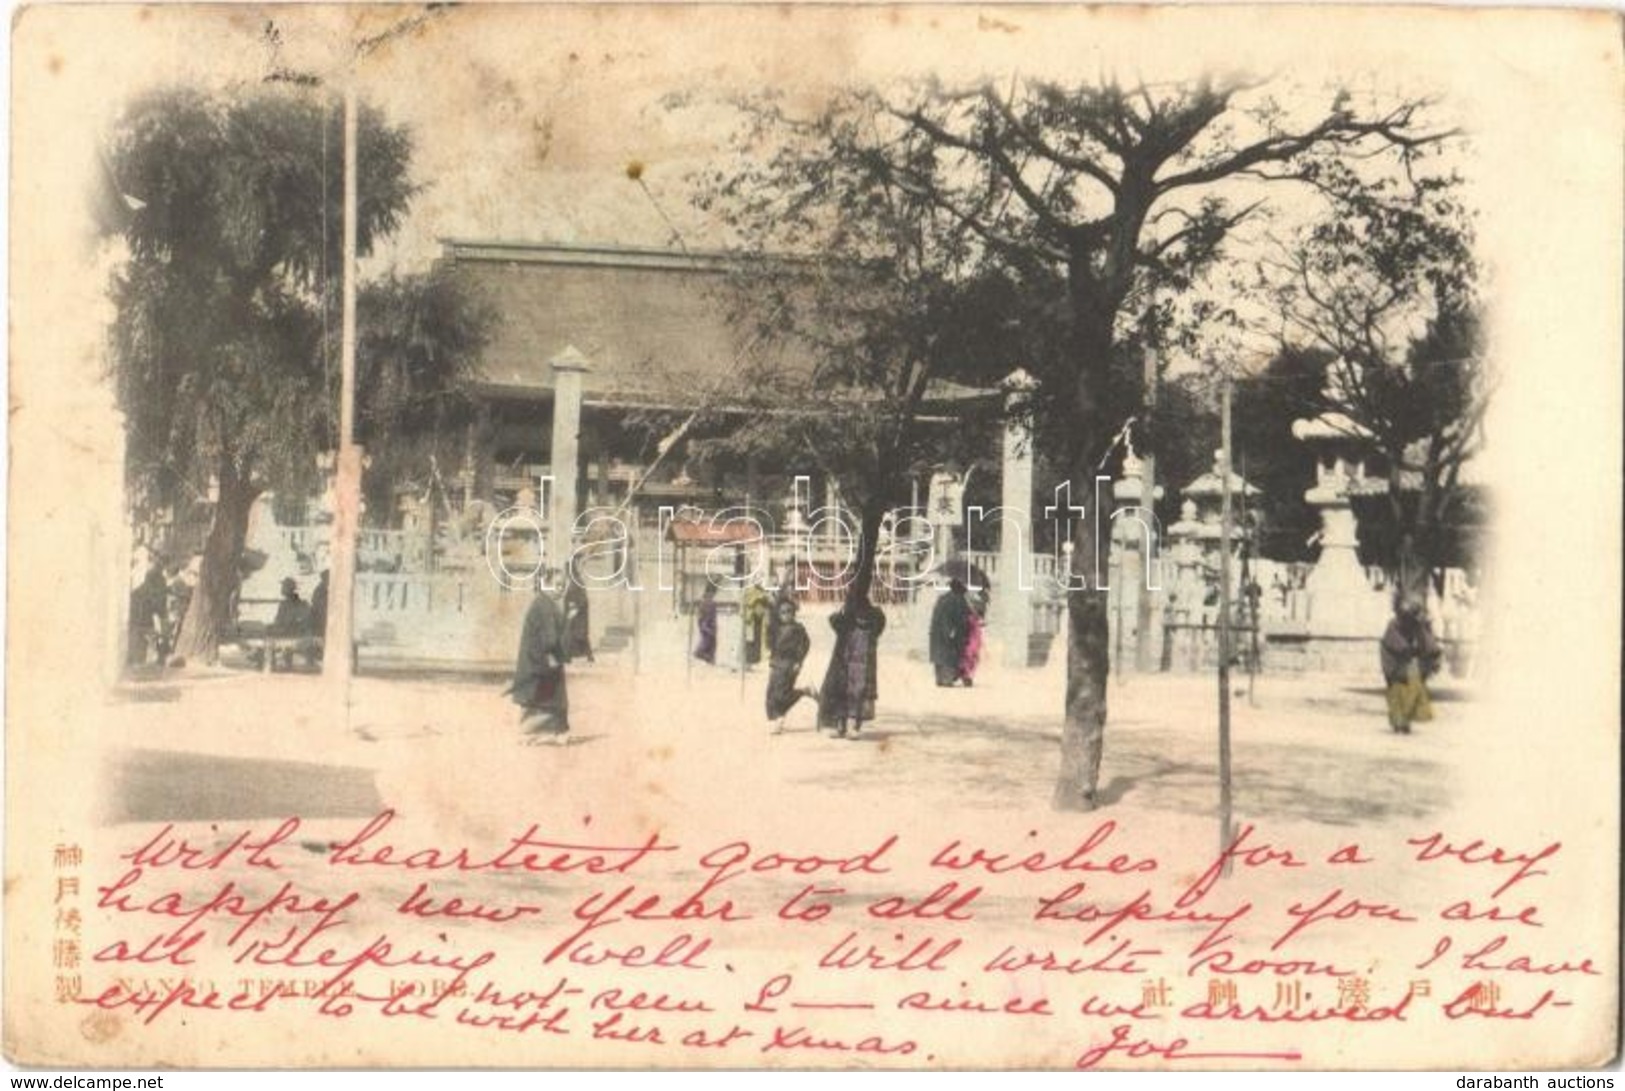 darabanth
With heartiest good wishes for a very
happy new year to all hoping you are
all keeping well. Will write soon. I have
not seen L— since we arrived but
expect to be with her at Xmas. Joe
NANKO TEMPLE KOBE.
社神川湊戸神
神戸後藤製
delcampe.net
darabanth auctions